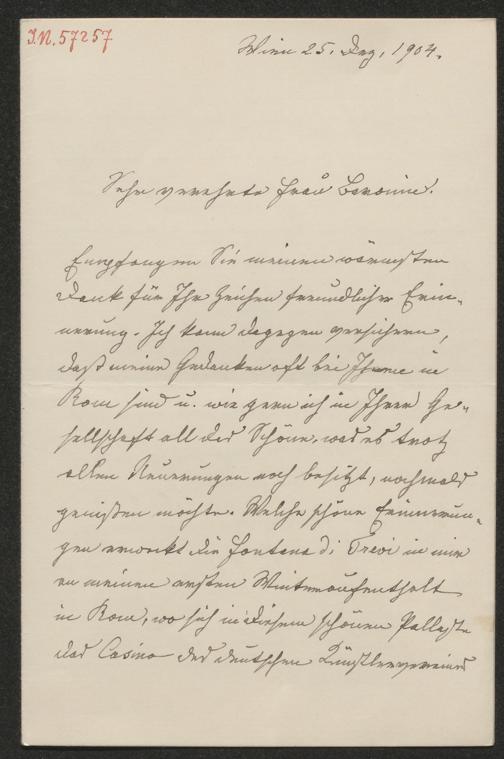 I.N. 57257
Wien 25. Dez. 1904.
Sehr verehrte Frau Baronin!
Empfangen Sie meinen wärmsten
Dank für Ihr Zeichen freundlicher Erin-
nerung. Ich kann dagegen versichern,
daß meine Gedanken oft bei Ihnen in
Rom sind u. wie gern ich in Ihrer Ge-
sellschaft all das Schöne, was es trotz
allen Neuerungen noch besitzt, nochmals
genießen möchte. Welche schöne Erinnerun-
gen erweckt die Fontana di Trevi in mir
an meinen ersten Winteraufenthalt
in Rom, wo sich in diesem schönen Palaste
das Casino des deutschen Künstlervereines